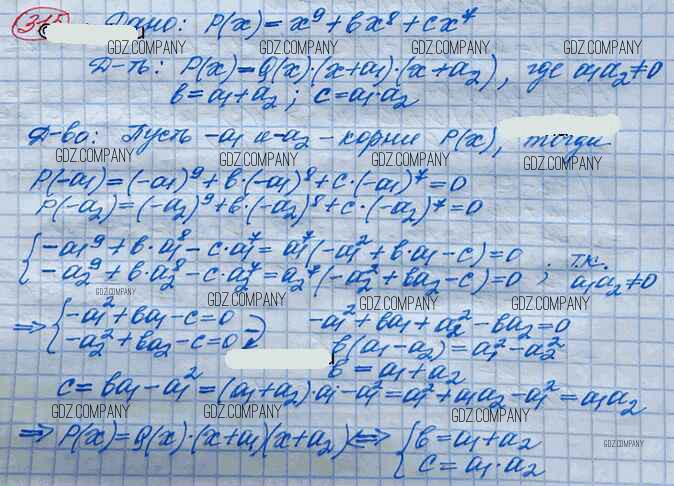 Дано: P(x)=x⁹+bx⁸+cx⁷
GDZ.COMPANY GDZ.COMPANY GDZ.COMPANY GDZ.COMPANY
Д-ть: P(x)=Q(x)·(x+a₁)·(x+a₂), где a₁a₂≠0
b=a₁+a₂; c=a₁·a₂
Д-во: Пусть -a₁ и -a₂ - корни P(x), тогда
GDZ.COMPANY GDZ.COMPANY GDZ.COMPANY GDZ.COMPANY
P(-a₁)=(-a₁)⁹+b·(-a₁)⁸+c·(-a₁)⁷=0
P(-a₂)=(-a₂)⁹+b·(-a₂)⁸+c·(-a₂)⁷=0
{ -a₁⁹+b·a₁⁸-c·a₁⁷=a₁⁷(-a₁²+b·a₁-c)=0
-a₂⁹+b·a₂⁸-c·a₂⁷=a₂⁷(-a₂²+ba₂-c)=0 ; т.к. a₁a₂≠0
GDZ.COMPANY GDZ.COMPANY GDZ.COMPANY GDZ.COMPANY
⇒ { -a₁²+ba₁-c=0
-a₂²+ba₂-c=0 }
-a₁²+ba₁+a₂²-ba₂=0
b(a₁-a₂)=a₁²-a₂²
b=a₁+a₂
c=ba₁-a₁²=(a₁+a₂)·a₁-a₁²=a₁²+a₁a₂-a₁²=a₁a₂
GDZ.COMPANY GDZ.COMPANY GDZ.COMPANY
⇒ P(x)=Q(x)·(x+a₁)(x+a₂) ⇔ { b=a₁+a₂
c=a₁·a₂
GDZ.COMPANY